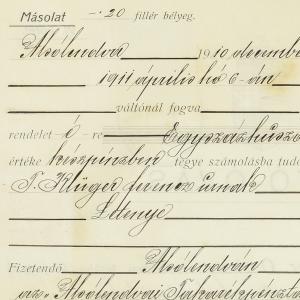 Másolat -·20 fillér bélyeg.
Alsólendva 1910 december
1911 április hó 6-án
váltónál fogva
rendelet é - re Egyszázhúszo
értéke készpénzben tegye számolásba tudó
T. Klüger Ferencz úrnak
Letenye
Fizetendő Alsólendván
az Alsólendvai Takarékpénztá